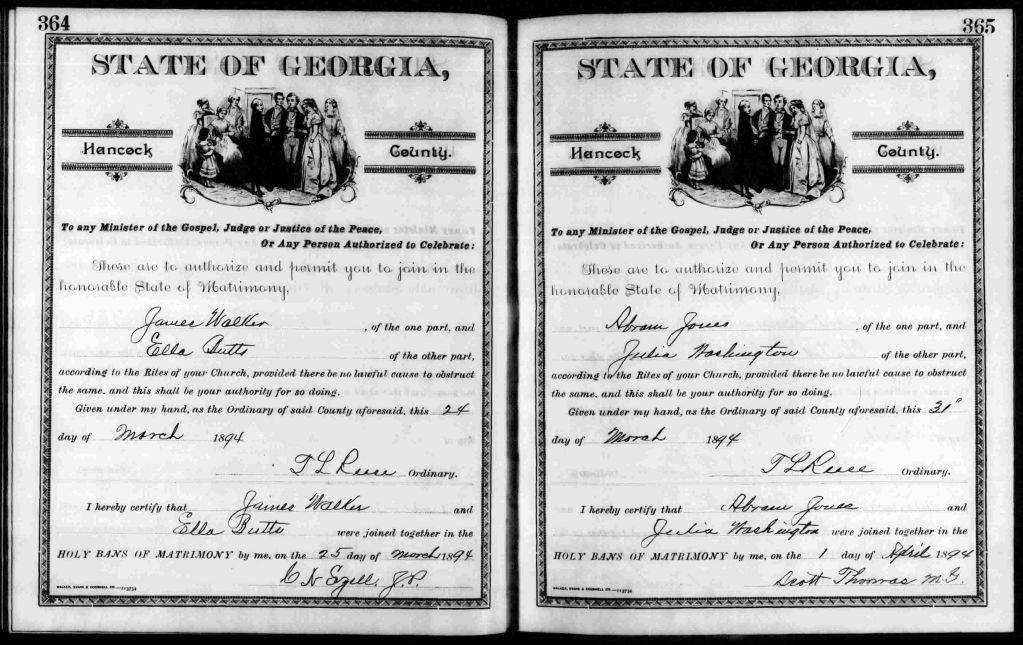 364
STATE OF GEORGIA,
Hancock County.
To any Minister of the Gospel, Judge or Justice of the Peace,
Or Any Person Authorized to Celebrate:
These are to authorize and permit you to join in the
honorable State of Matrimony,
James Walker, of the one part, and
Ella Butts of the other part,
according to the Rites of your Church, provided there be no lawful cause to obstruct
the same, and this shall be your authority for so doing.
Given under my hand, as the Ordinary of said County aforesaid, this 24
day of March 1894
T L Reese Ordinary.
I hereby certify that James Walker and
Ella Butts were joined together in the
HOLY BANS OF MATRIMONY by me, on the 25 day of March 1894
C N Ezell, J.P.
WALKER, EVANS & COGSWELL CO.
365
STATE OF GEORGIA,
Hancock County.
To any Minister of the Gospel, Judge or Justice of the Peace,
Or Any Person Authorized to Celebrate:
These are to authorize and permit you to join in the
honorable State of Matrimony,
Abram Jones, of the one part, and
Julia Washington of the other part,
according to the Rites of your Church, provided there be no lawful cause to obstruct
the same, and this shall be your authority for so doing.
Given under my hand, as the Ordinary of said County aforesaid, this 31"
day of March 1894
T L Reese Ordinary.
I hereby certify that Abram Jones and
Julia Washington were joined together in the
HOLY BANS OF MATRIMONY by me, on the 1 day of April 1894
Scott Thomas M.G.
WALKER, EVANS & COGSWELL CO.